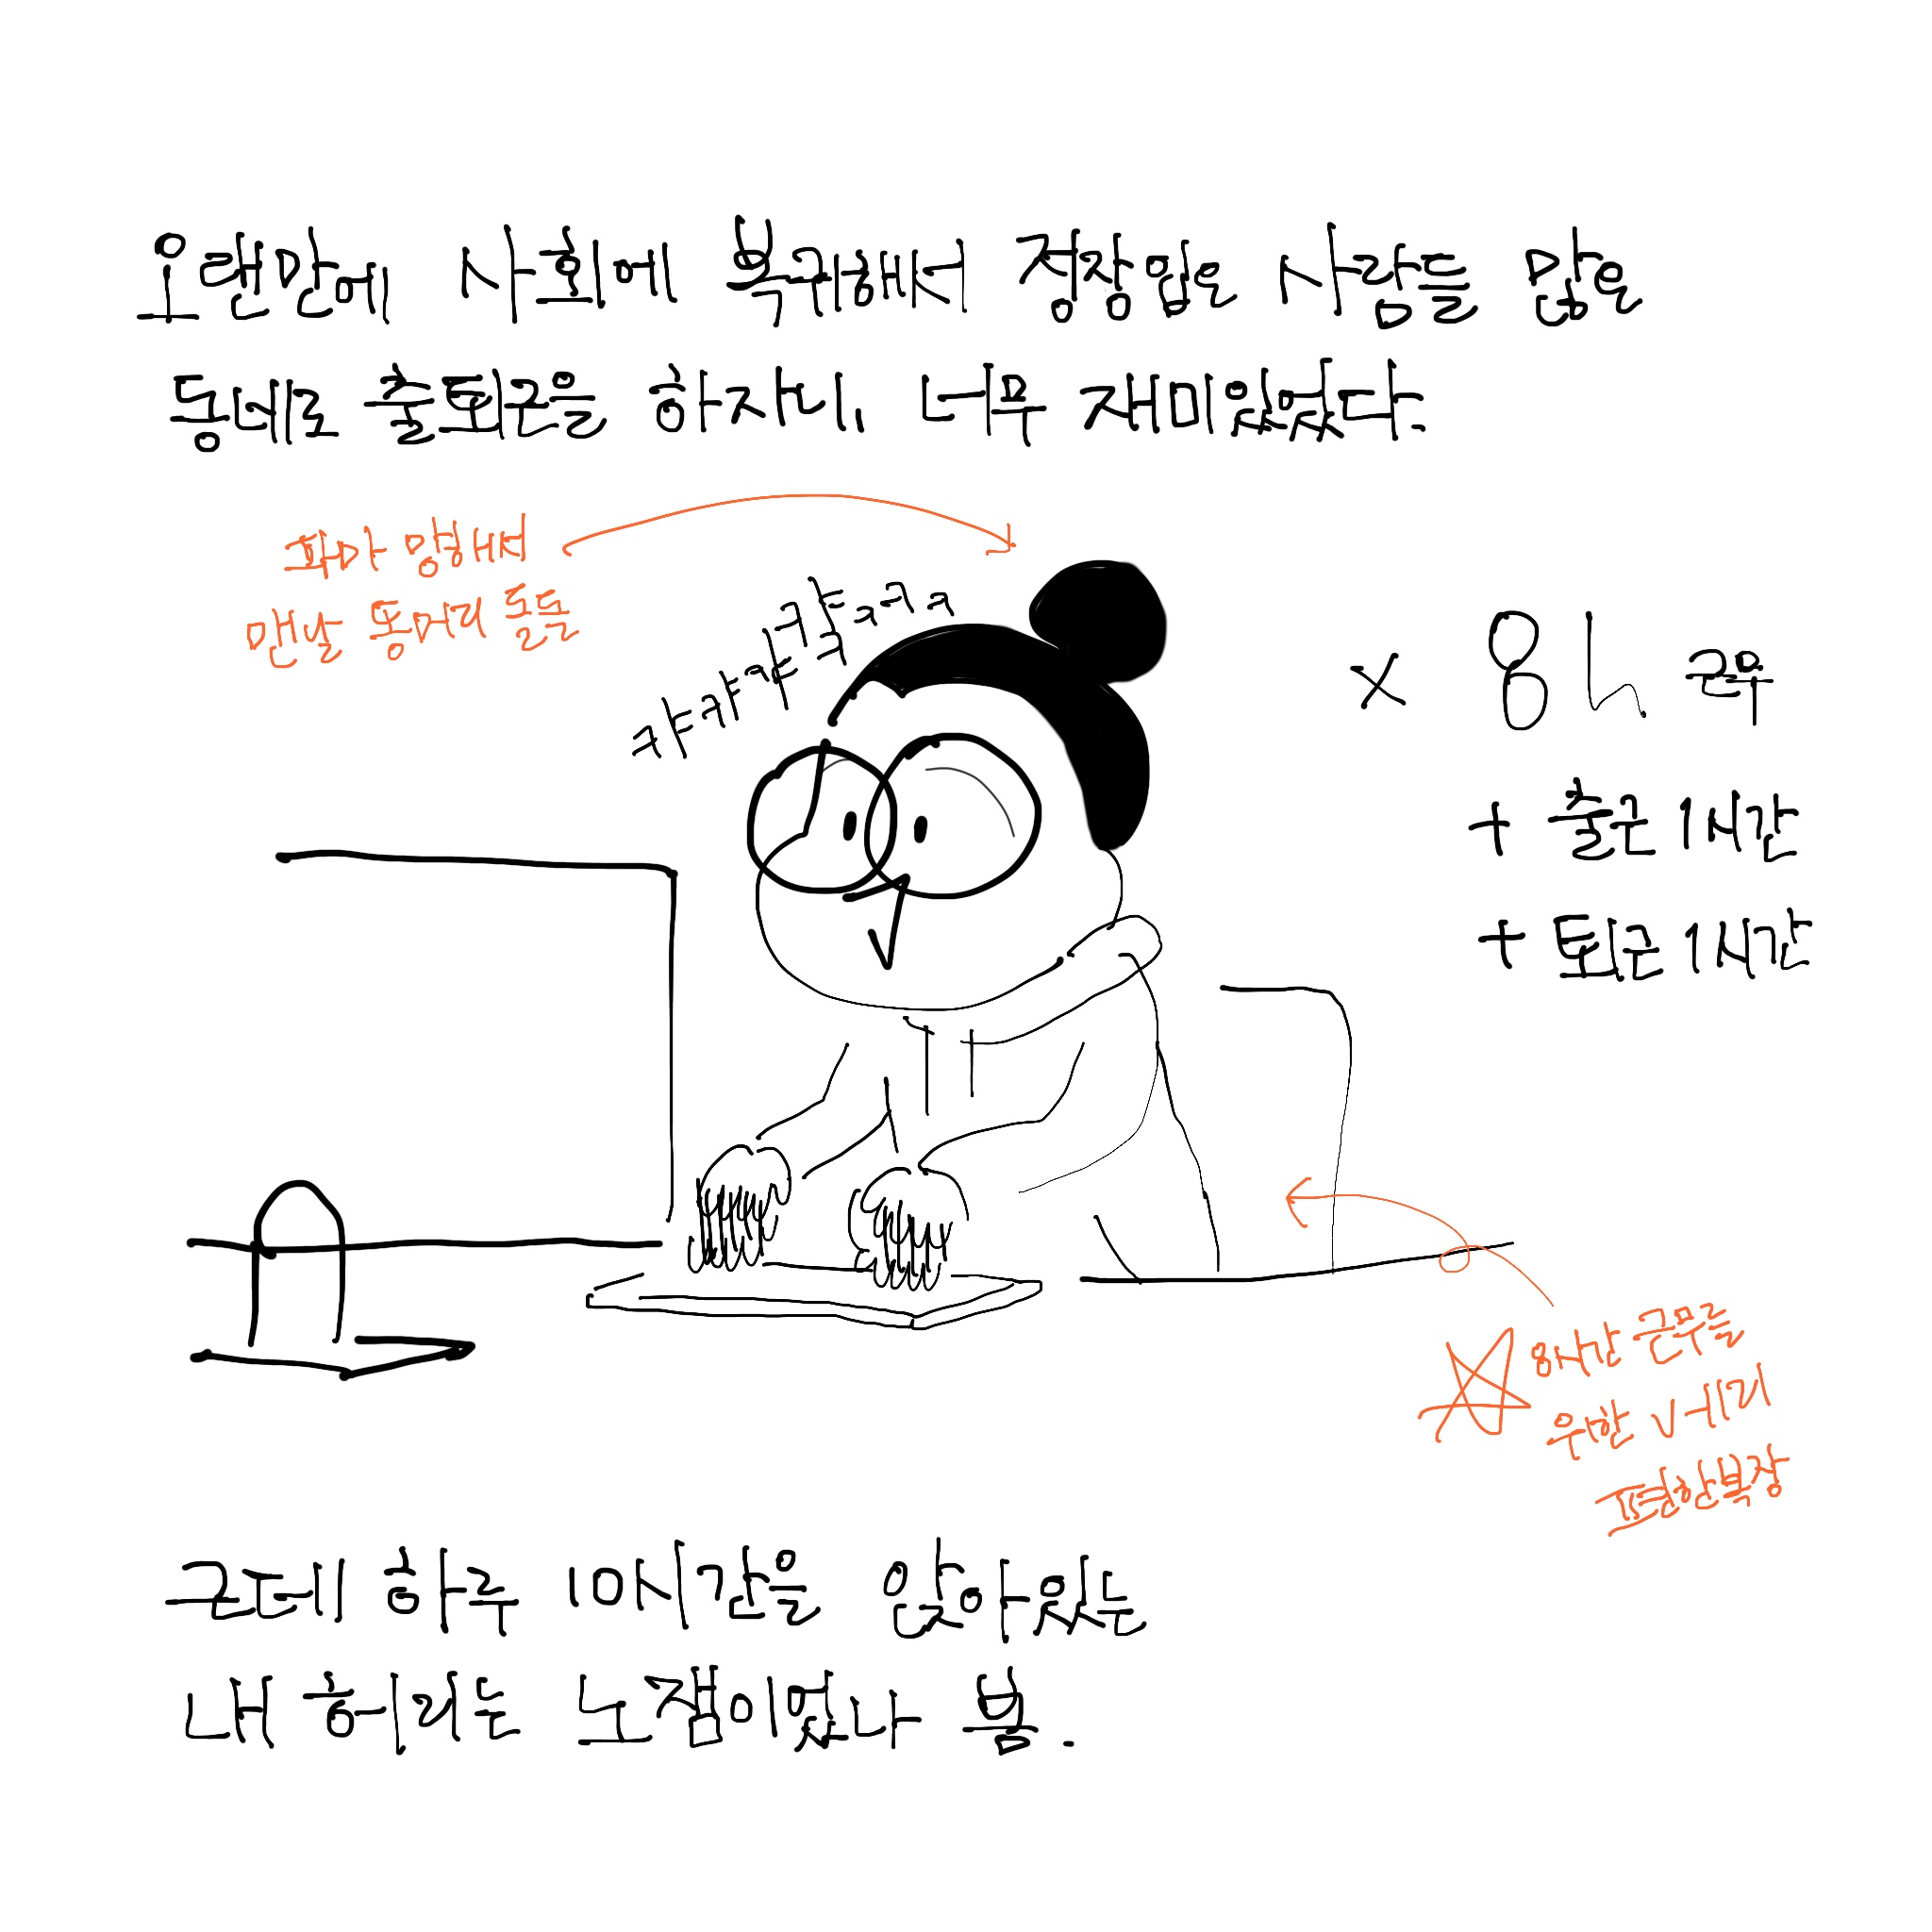 오랜만에 사회에 복귀해서 정장입은 사람들 많은
동네로 출퇴근을 하자니, 너무 재미있었다.
파마 망해서
맨날 똥머리
× 8h 근무
+ 출근 1시간
+ 퇴근 1시간
8시간 근무를
위한 너비
편한복장
그런데 하루 10시간을 앉아있는
내 허리는 노잼이었나 봄.